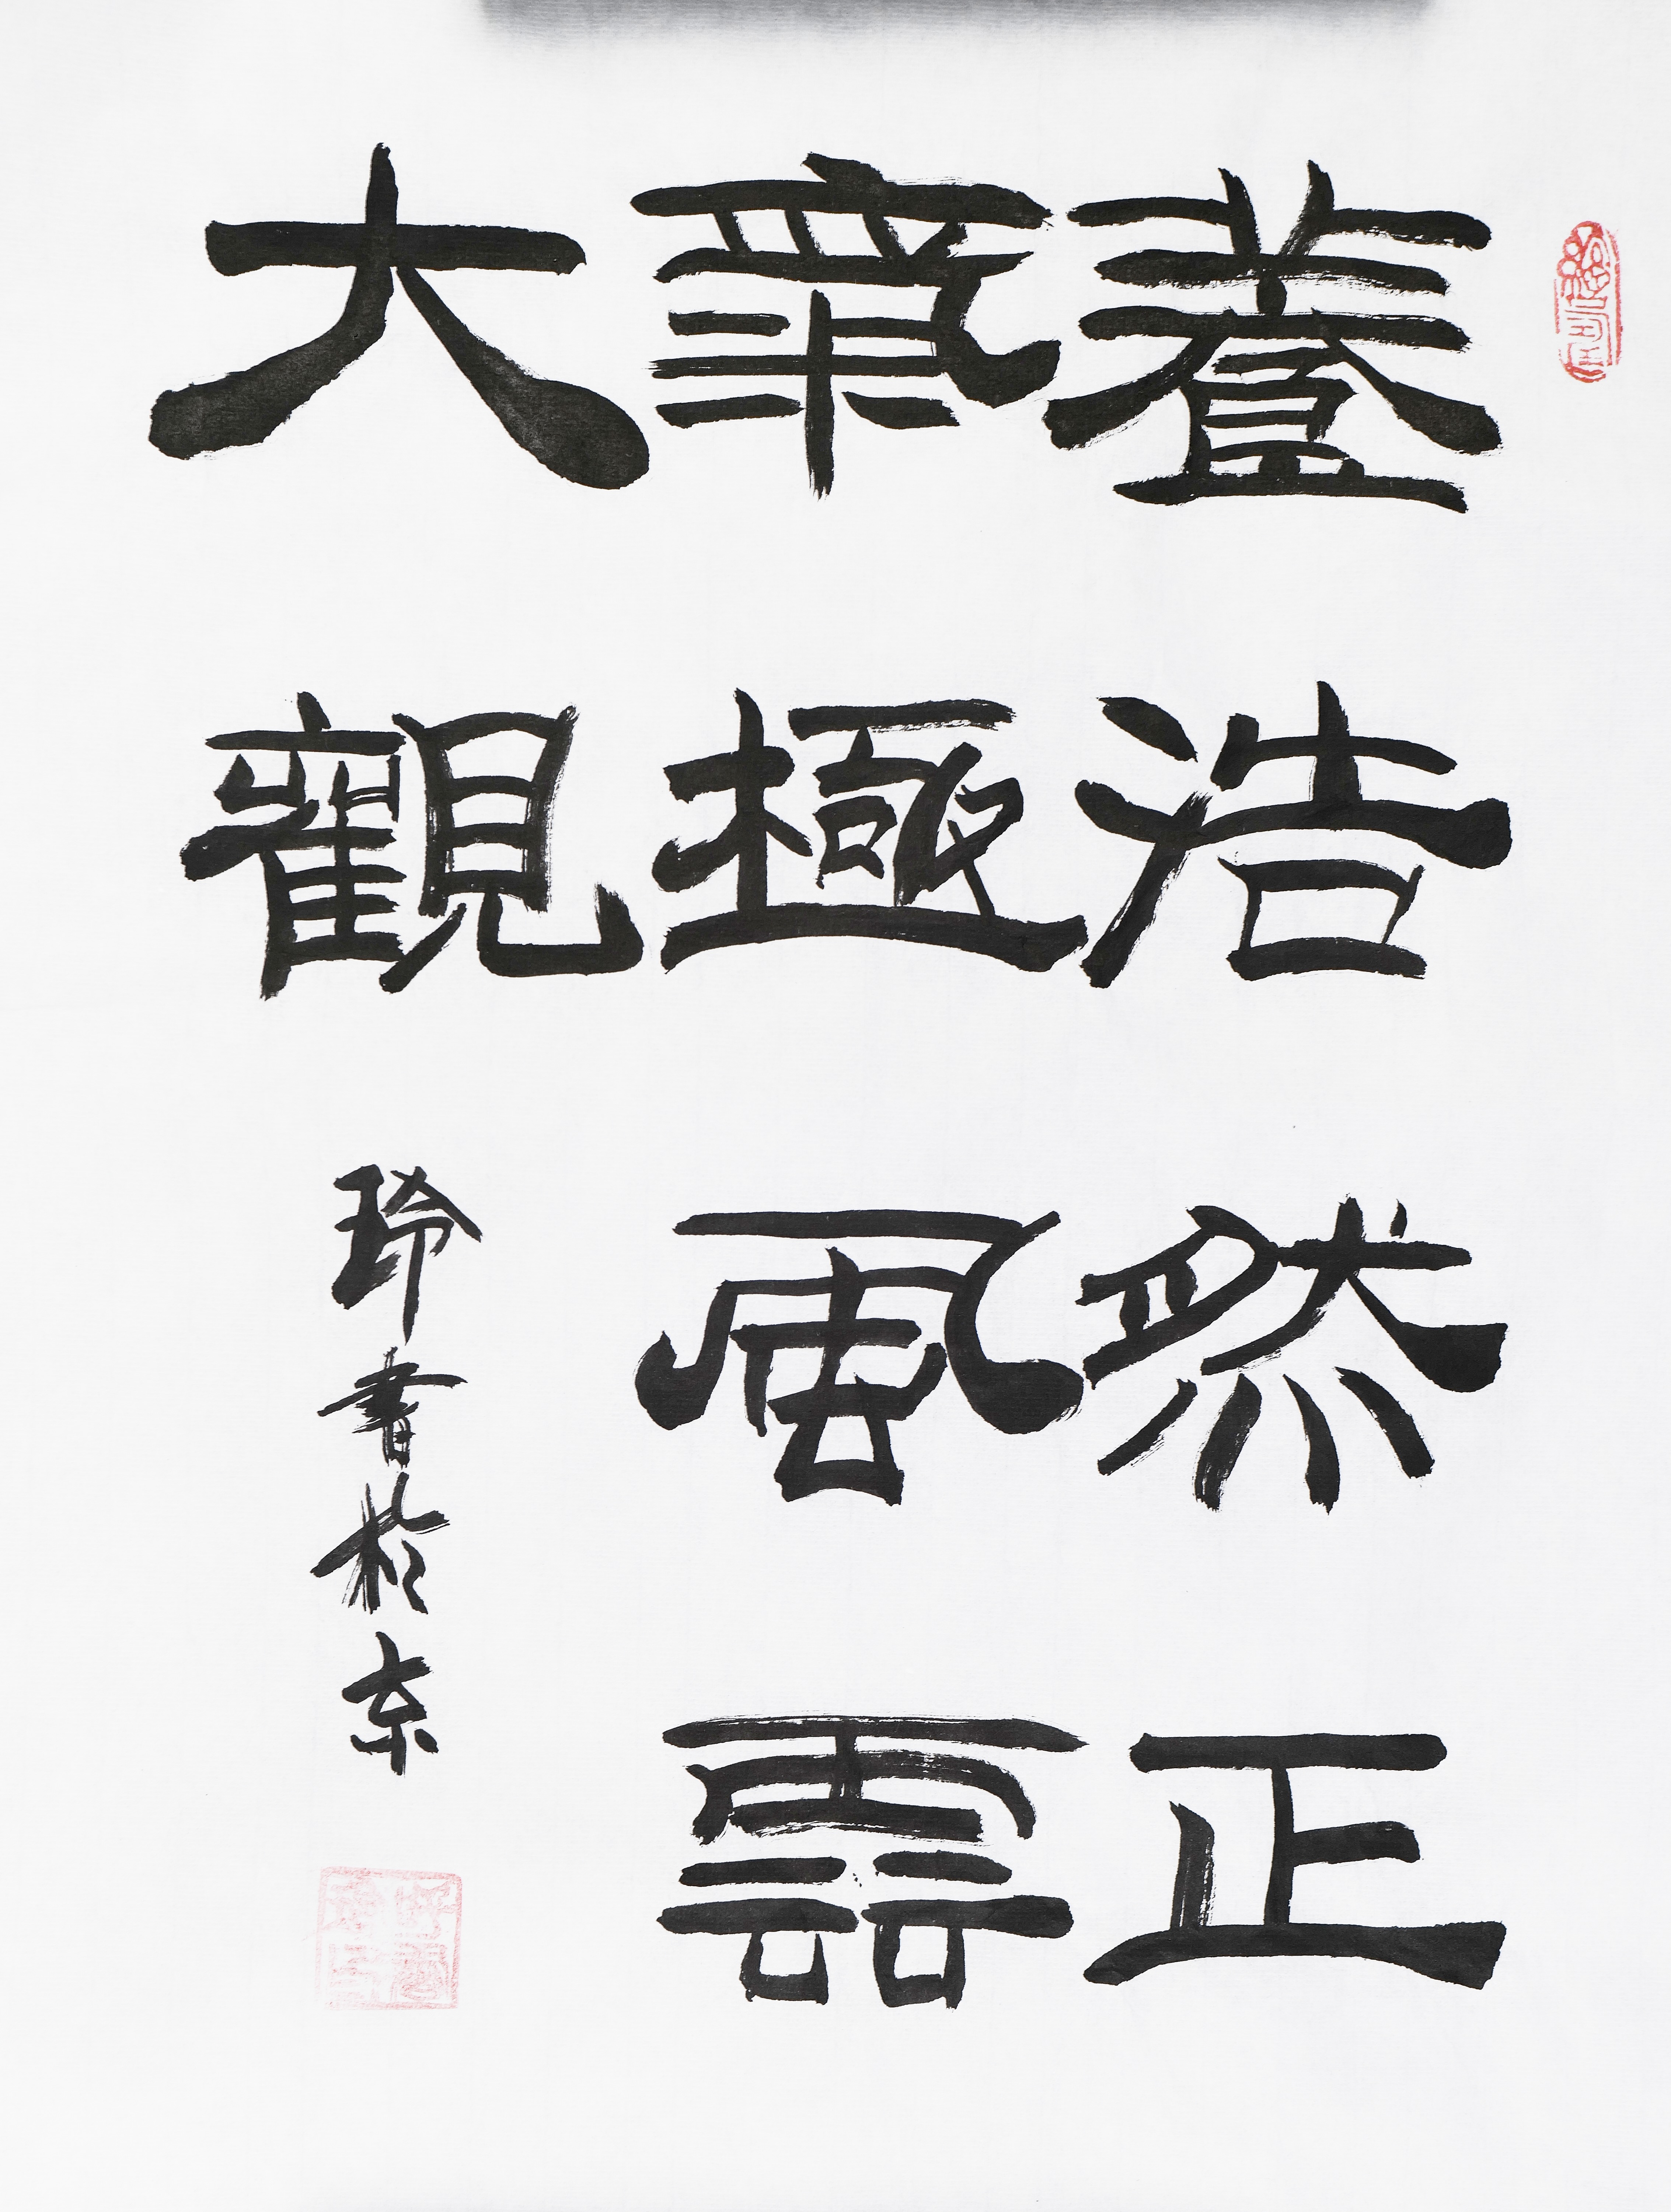 養浩然正
氣極風雲
大觀
玲書於京